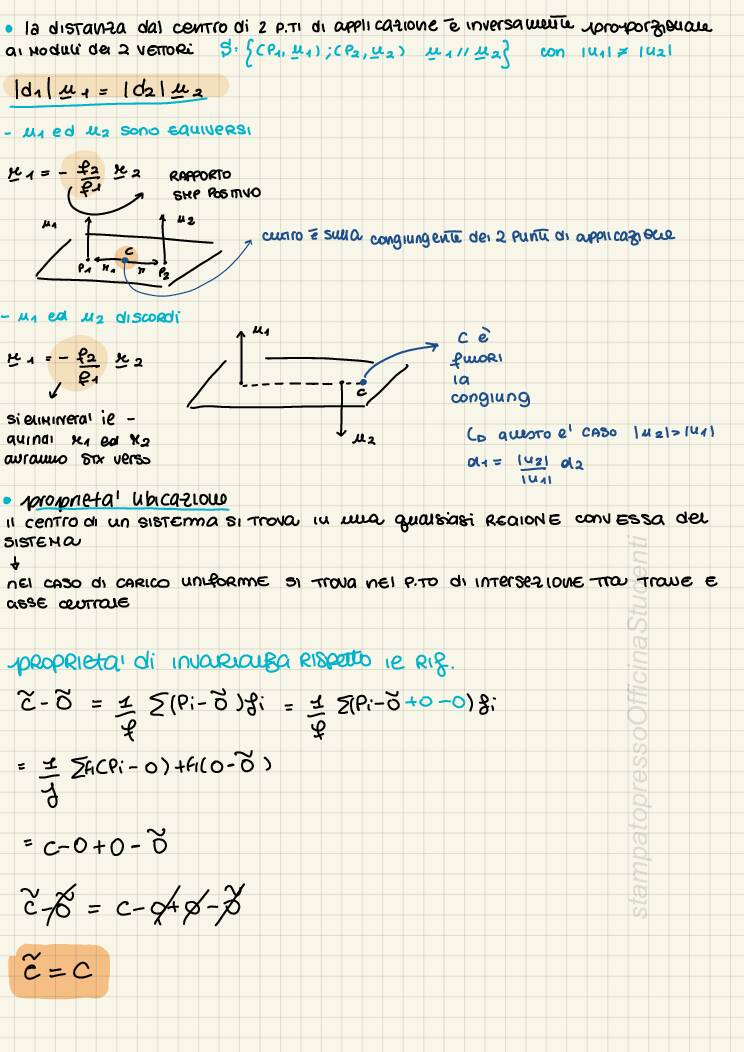 • la distanza dal centro di 2 p.ti di applicazione è inversamente proporzionale
ai moduli dei 2 vettori S: {(P1, u1) ; (P2, u2) u1 // u2} con |u1| ≠ |u2|
|d1| u1 = |d2| u2
- u1 ed u2 sono equiversi
r1 = - f2/f1 r2 RAPPORTO
SMP POSITIVO
u1 u2
C
P1 r1 r P2
cuntro è sulla congiungente dei 2 punti di applicazione
- u1 ed u2 discordi
r1 = - f2/f1 r2
u1
C
u2
C è
fuori
la
congiung
si eliminerà ie -
quindi r1 ed r2
avranno stx verso
↳ questo è caso |u2| > |u1|
d1 = |u2|/|u1| d2
• proprieta' ubicazione
il centro di un sistema si trova in una qualsiasi REGIONE CONVESSA del
SISTEMA
↓
nel caso di carico uniforme si trova nel p.to di intersezione tra trave e
asse centrale
proprieta' di invarianza rispetto ie rif.
c̃ - õ = 1/f Σ(Pi - õ)fi = 1/f Σ(Pi - õ + o - o) fi
= 1/f Σfi(Pi - o) + fi(o - õ)
= c - o + o - õ
c̃ - õ = c - o + o - õ
c̃ = c
stampatopressoOfficinaStudenti